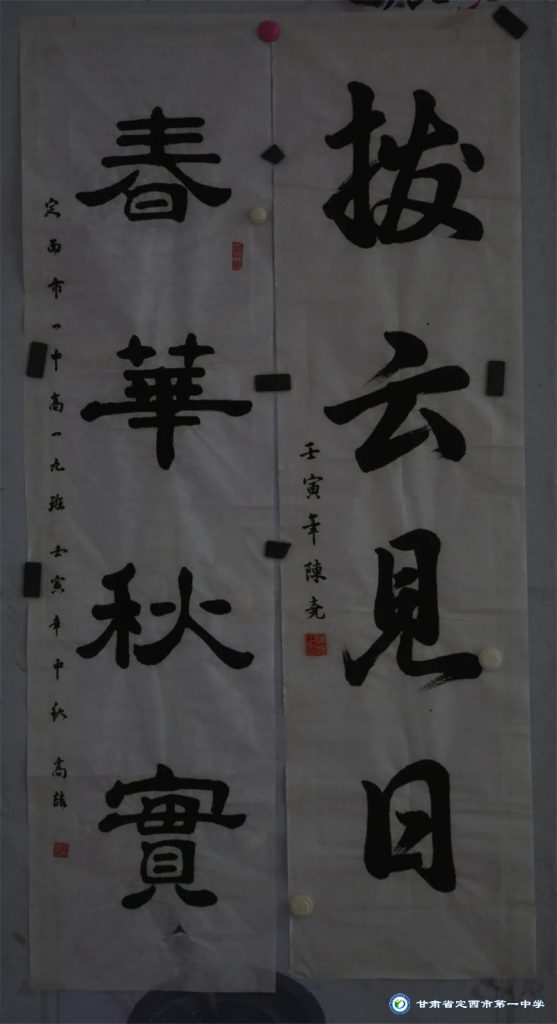 拨云見日
壬寅年陳尧
春華秋實
定西市一中高一九班壬寅年中秋高喆
甘肃省定西市第一中学